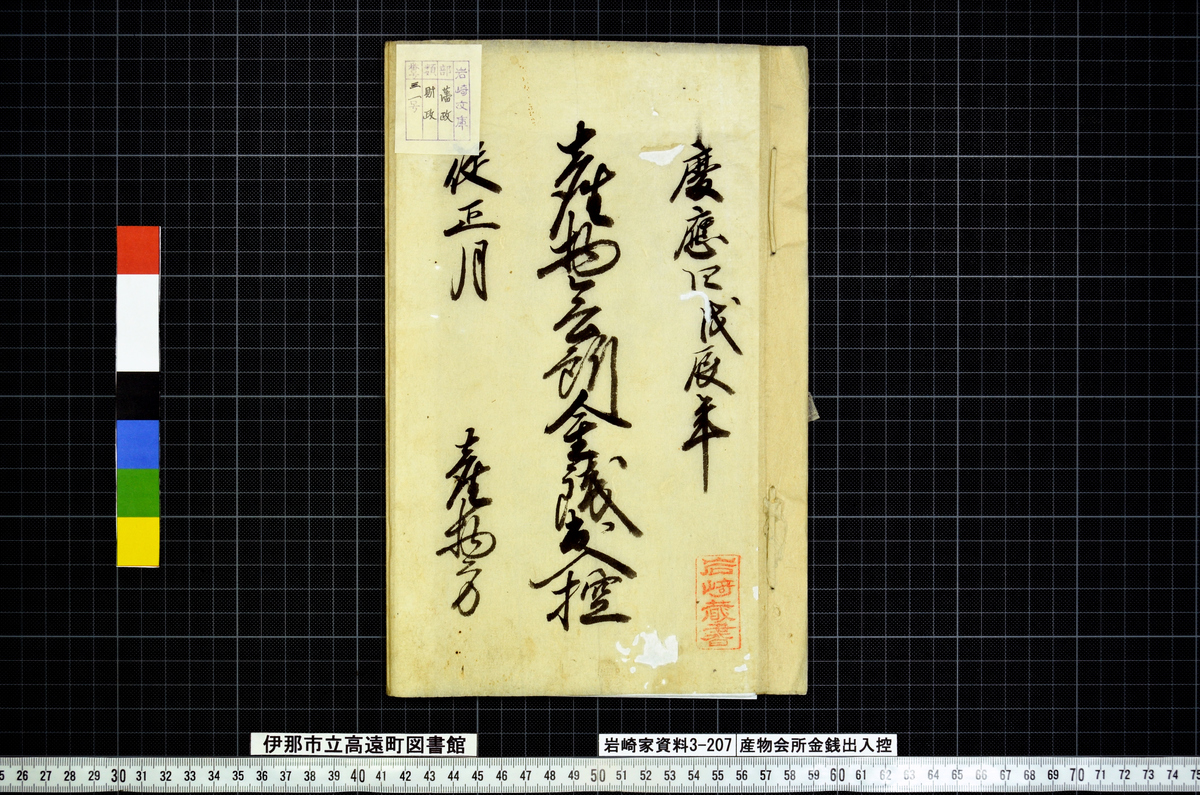 慶應四戊辰年
産物会所金銭出入控
従正月
産物方
岩崎蔵書
岩崎文庫
部 藩政
類 財政
三一号
伊那市立高遠町図書館
岩崎家資料3-207 産物会所金銭出入控
5 26 27 28 29 30 31 32 33 34 35 36 37 38 39 40 41 42 43 44 45 46 47 48 49 50 51 52 53 54 55 56 57 58 59 60 61 62 63 64 65 66 67 68 69 70 71 72 73 74 75